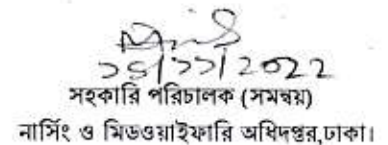 ১৫/১১/2022
সহকারি পরিচালক (সমন্বয়)
নার্সিং ও মিডওয়াইফারি অধিদপ্তর,ঢাকা।